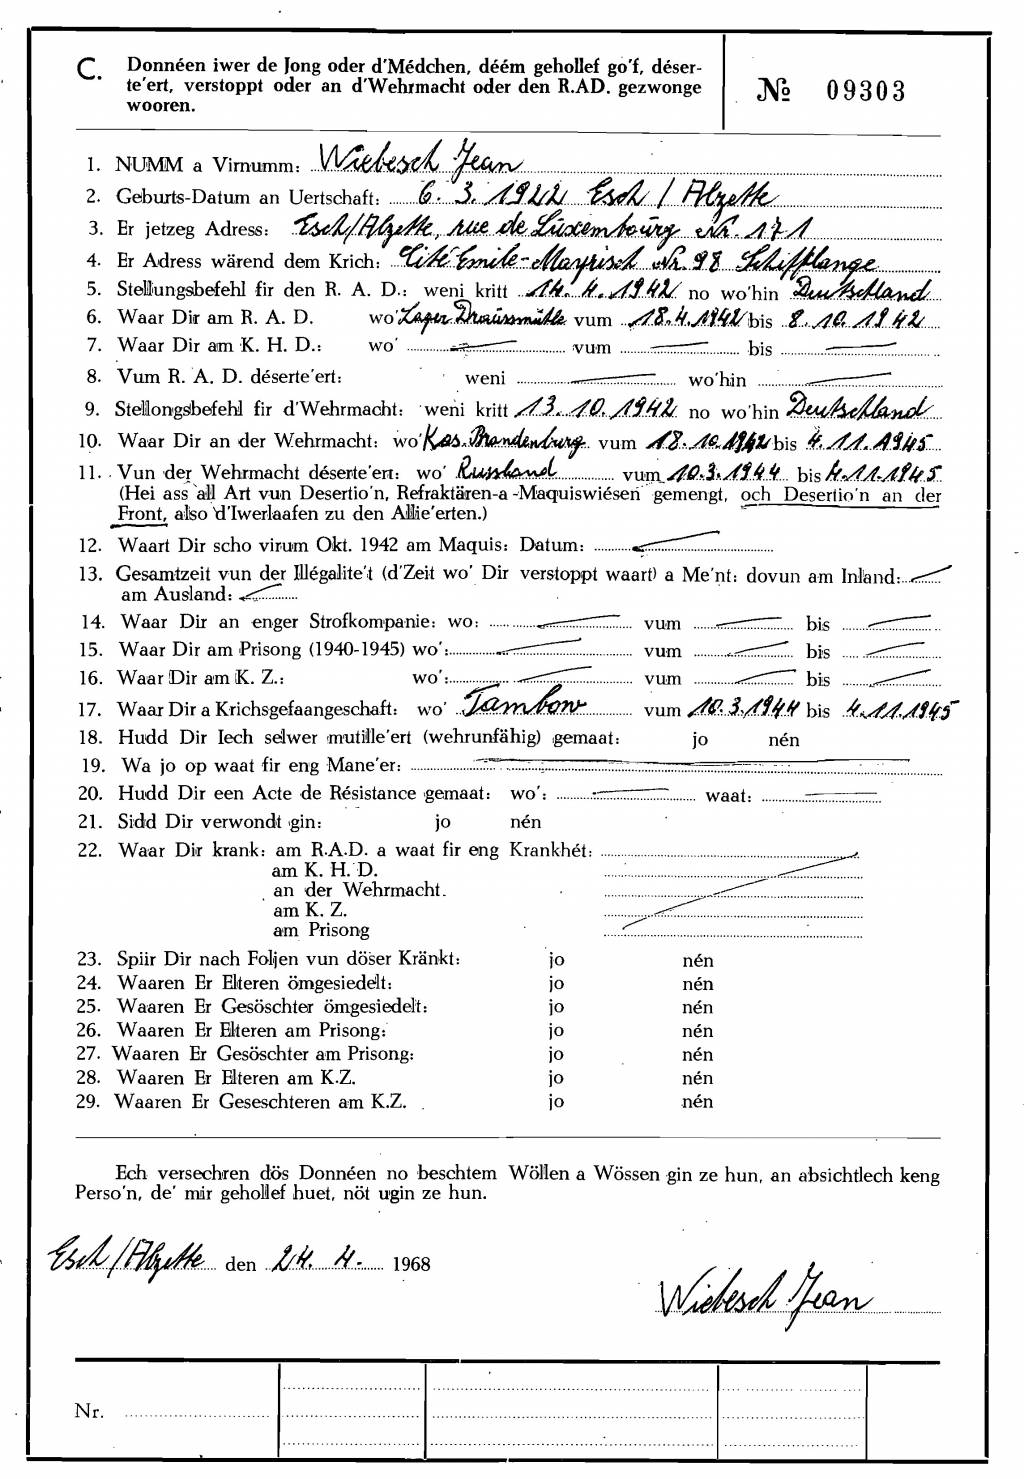 C. Donnéen iwer de Jong oder d'Médchen, déém gehollef go'f, déser-
te'ert, verstoppt oder an d'Wehrmacht oder den R.AD. gezwonge
wooren.
№ 09303
1. NUMM a Virnumm: Wiebesch Jean
2. Geburts-Datum an Uertschaft: 6. 3. 1922 Esch / Alzette
3. Er jetzeg Adress: Esch/Alzette, rue de Luxembourg Nr. 171
4. Er Adress wärend dem Krich: Cité Emile-Mayrisch Nr. 98 Schifflange
5. Stellungsbefehl fir den R. A. D.: weni kritt 14. 4. 1942 no wo'hin Deutschland
6. Waar Dir am R. A. D. wo' Lager vum 18.4.1942 bis 8. 10. 1942
7. Waar Dir am K. H. D.: wo' vum bis
8. Vum R. A. D. déserte'ert: weni wo'hin
9. Stellongsbefehl fir d'Wehrmacht: weni kritt 13. 10. 1942 no wo'hin Deutschland
10. Waar Dir an der Wehrmacht: wo' Kas. Brandenburg vum 18. 10. 1942 bis 4. 11. 1945
11. Vun der Wehrmacht déserte'ert: wo' Russland vum 10.3.1944 bis 4.11.1945
(Hei ass all Art vun Desertio'n, Refraktären-a-Maquiswiésen gemengt, och Desertio'n an der
Front, also d'Iwerlaafen zu den Allie'erten.)
12. Waart Dir scho virum Okt. 1942 am Maquis: Datum:
13. Gesamtzeit vun der Illégalite't (d'Zeit wo' Dir verstoppt waart) a Me'nt: dovun am Inland:
am Ausland:
14. Waar Dir an enger Strofkompanie: wo: vum bis
15. Waar Dir am Prisong (1940-1945) wo': vum bis
16. Waar Dir am K. Z.: wo': vum bis
17. Waar Dir a Krichsgefaangeschaft: wo' Tambow vum 10. 3. 1944 bis 4. 11. 1945
18. Hudd Dir Iech selwer mutille'ert (wehrunfähig) gemaat: jo nén
19. Wa jo op waat fir eng Mane'er:
20. Hudd Dir een Acte de Résistance gemaat: wo': waat:
21. Sidd Dir verwondt gin: jo nén
22. Waar Dir krank: am R.A.D. a waat fir eng Krankhét:
am K. H. D.
an der Wehrmacht.
am K. Z.
am Prisong
23. Spiir Dir nach Foljen vun döser Kränkt: jo nén
24. Waaren Er Elteren ömgesiedelt: jo nén
25. Waaren Er Gesöschter ömgesiedelt: jo nén
26. Waaren Er Elteren am Prisong: jo nén
27. Waaren Er Gesöschter am Prisong: jo nén
28. Waaren Er Elteren am K.Z. jo nén
29. Waaren Er Geseschteren am K.Z. jo nén
Ech versechren dös Donnéen no beschtem Wöllen a Wössen gin ze hun, an absichtlech keng
Perso'n, de' mir gehollef huet, nöt ugin ze hun.
Esch/Alzette den 24. 4. 1968
Wiebesch Jean
Nr.